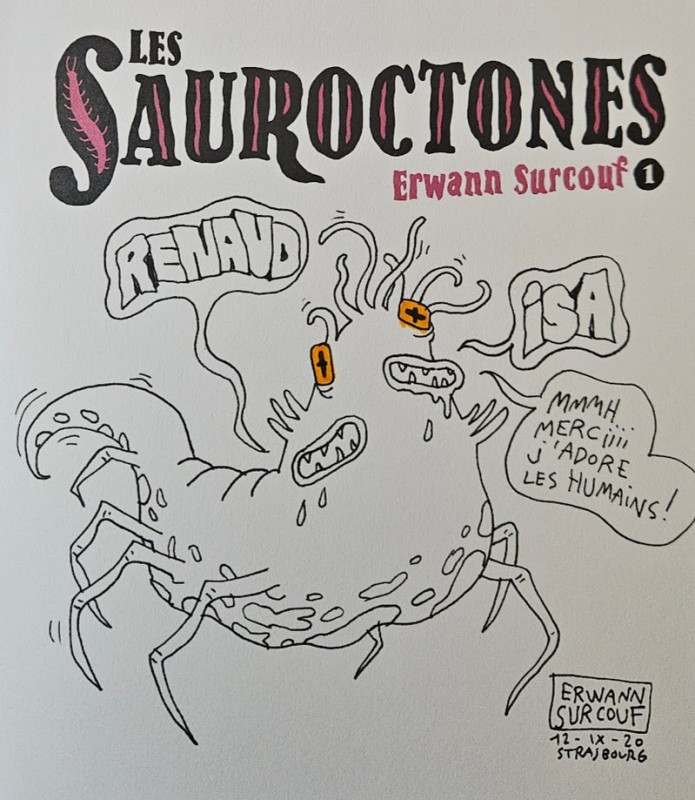 LES
SAUROCTONES
Erwann Surcouf 1
RENAUD
iSA
MMMH...
MERCiiii
J'ADORE
LES HUMAiNS!
ERWANN
SURCOUF
12-IX-20
STRASBOURG